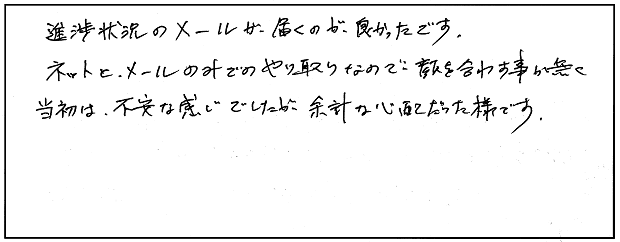 進渉状況のメールが届くのが良かったです。
ネットと、メールのみでのやり取りなので顔を合わす事が無く
当初は、不安な感じでしたが余計な心配だった様です。